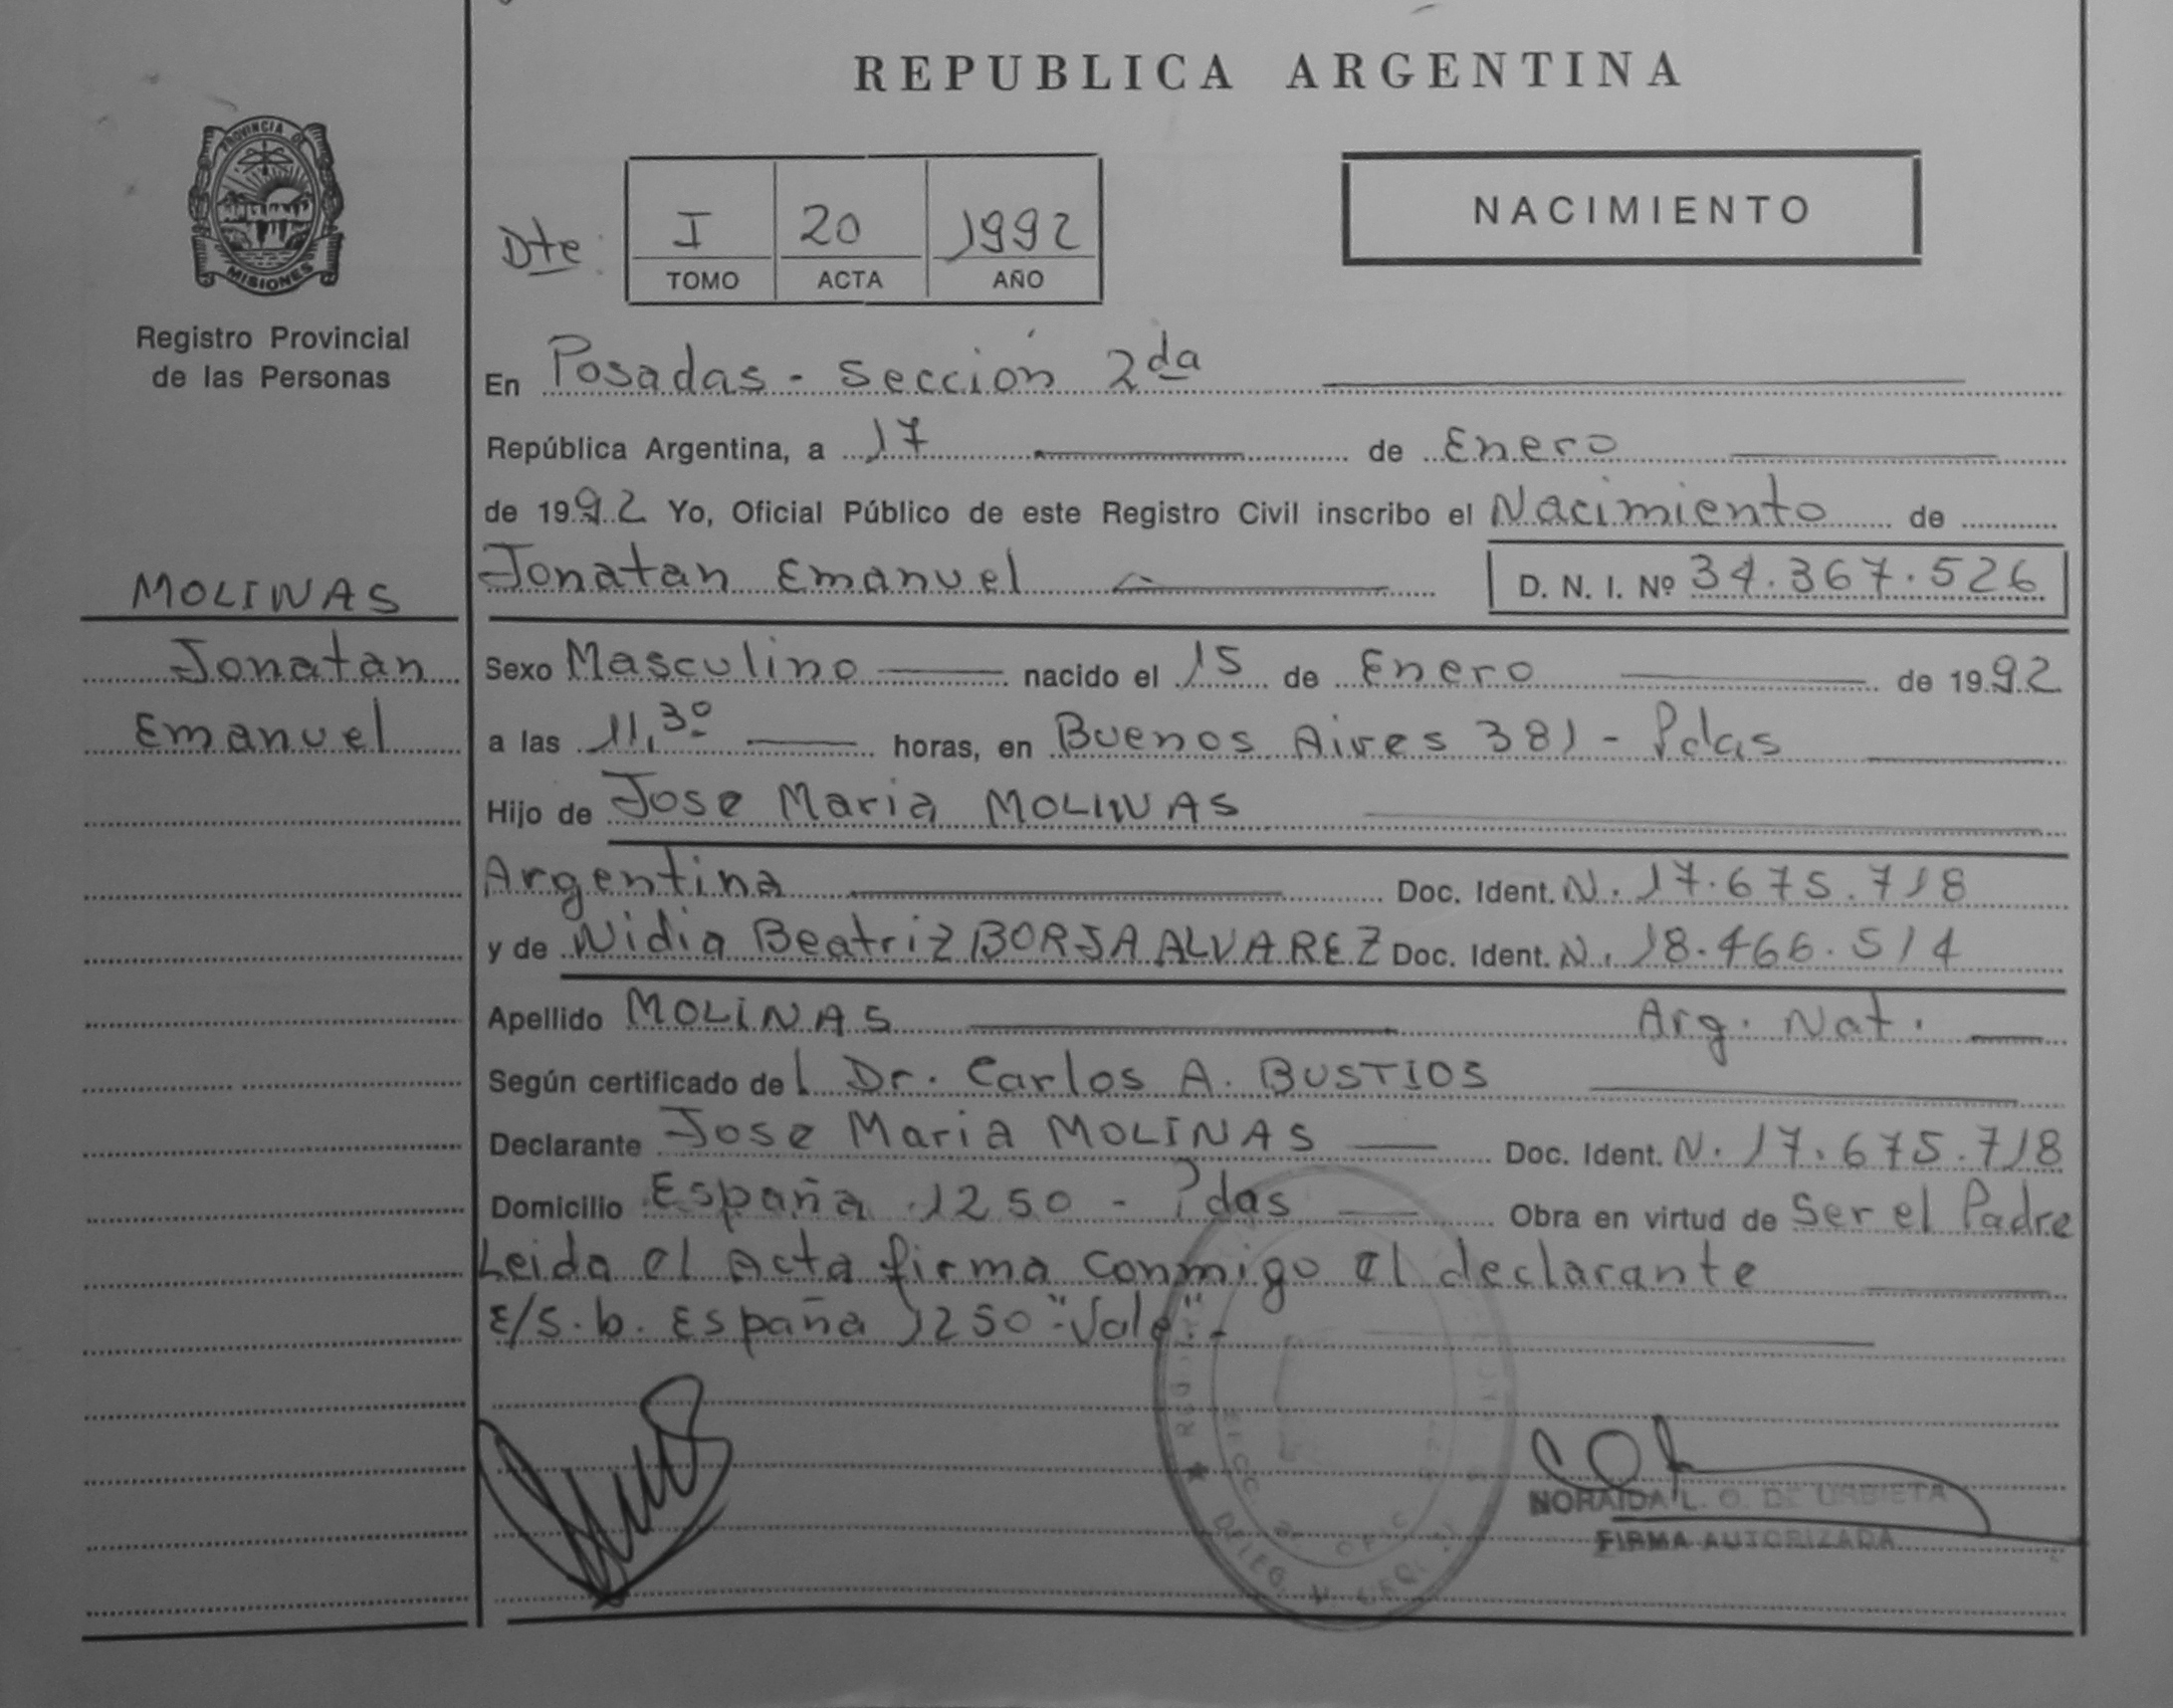 REPUBLICA ARGENTINA
PROVINCIA DE
MISIONES
Registro Provincial
de las Personas
NACIMIENTO
Dte:
I 20 1992
TOMO ACTA AÑO
En Posadas - sección 2da
República Argentina, a 17 de Enero
de 1992 Yo, Oficial Público de este Registro Civil inscribo el Nacimiento de
Jonatan Emanuel D. N. I. Nº 34.367.526
MOLINAS
Jonatan
Emanuel
Sexo Masculino nacido el 15 de Enero de 1992
a las 11,30 horas, en Buenos Aires 381 - Pdas
Hijo de Jose Maria MOLINAS
Argentina Doc. Ident. N. 17.675.718
y de Nidia Beatriz BORJA ALVAREZ Doc. Ident. N. 18.466.514
Apellido MOLINAS Arg. Nat.
Según certificado del Dr. Carlos A. BUSTIOS
Declarante Jose Maria MOLINAS Doc. Ident. N. 17.675.718
Domicilio España 1250 - Pdas Obra en virtud de Ser el Padre
Leida el Acta firma conmigo el declarante
E/S.b. España 1250 "Vale".-
NORAIDA L. O. DE URBIETA
FIRMA AUTORIZADA